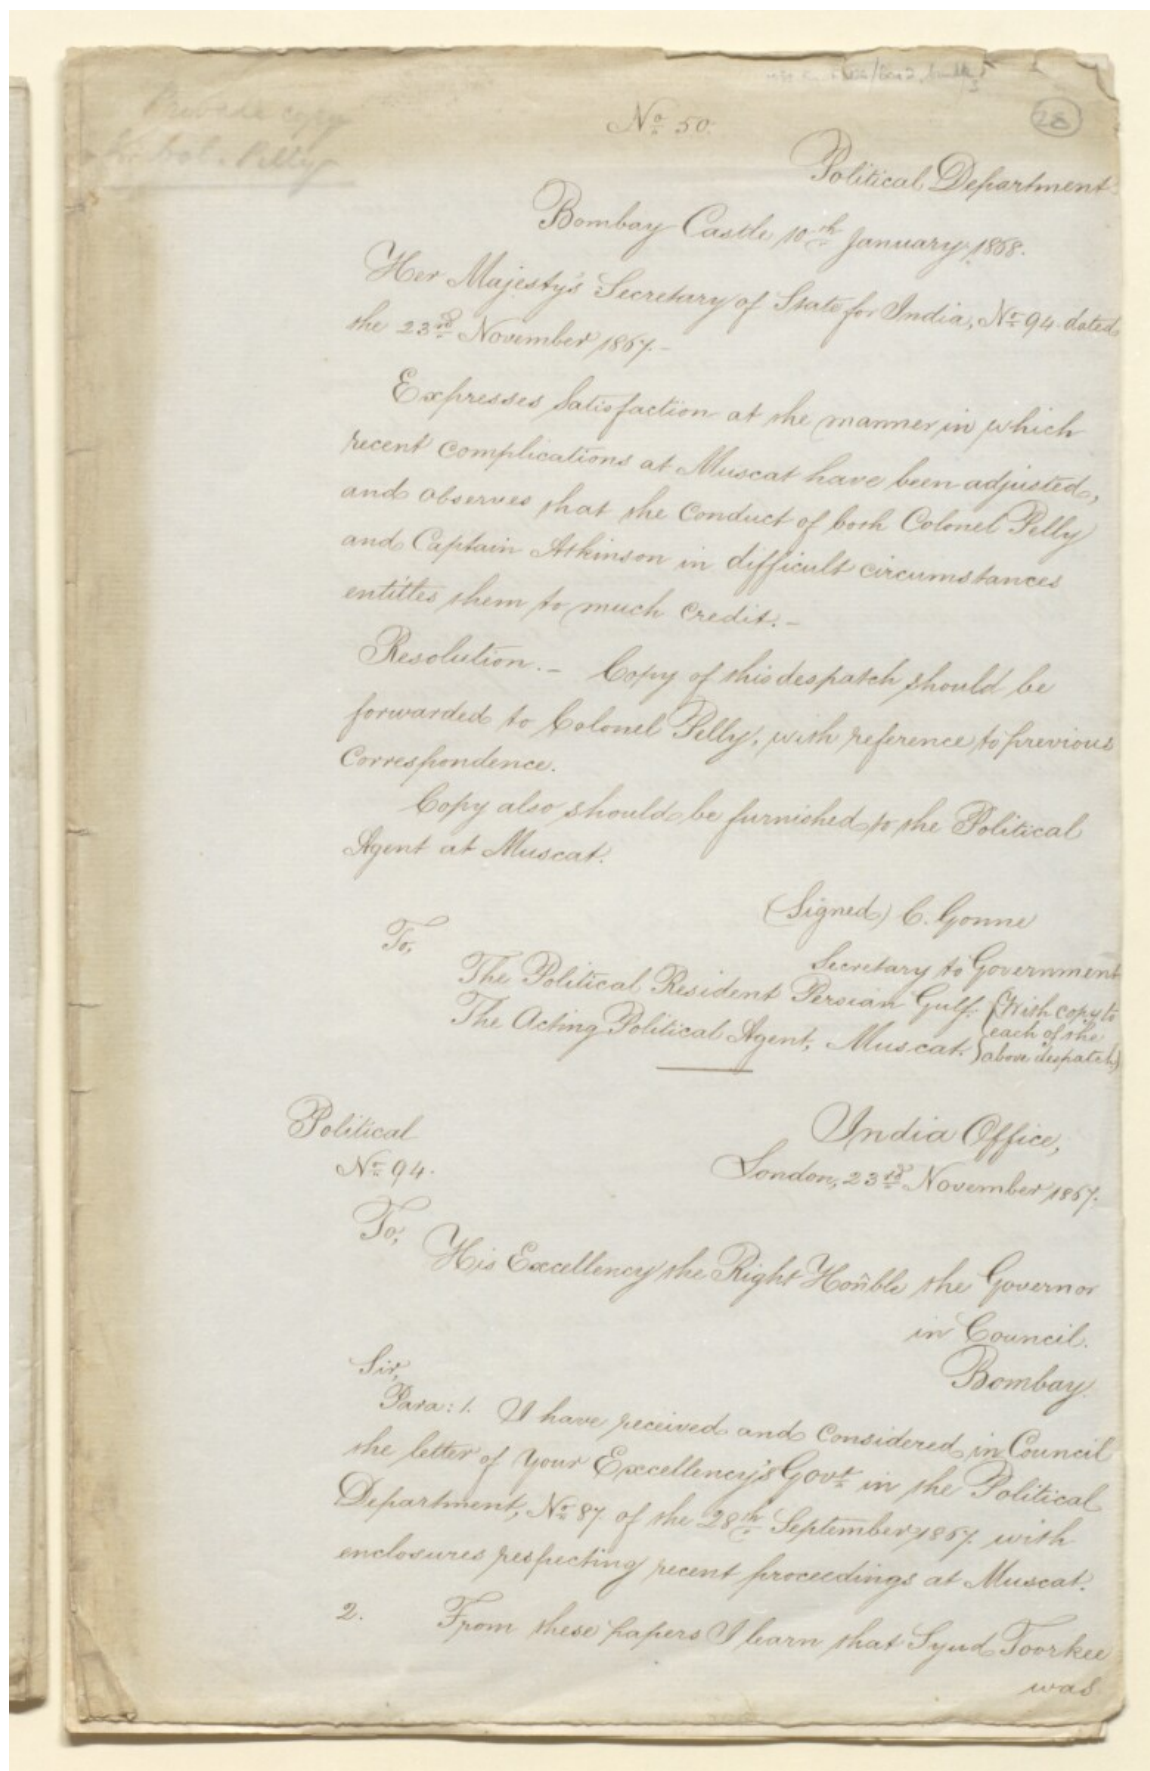 Private copy
for Col. Pelly
28
No. 50.
Political Department
Bombay Castle 10th January 1868.
Her Majesty's Secretary of State for India, No. 94 dated
the 23rd November 1867.-
Expresses satisfaction at the manner in which
recent complications at Muscat have been adjusted,
and observes that the conduct of both Colonel Pelly
and Captain Atkinson in difficult circumstances
entitles them to much credit.-
Resolution.- Copy of this despatch should be
forwarded to Colonel Pelly, with reference to previous
correspondence.
Copy also should be furnished to the Political
Agent at Muscat.
(Signed) C. Gonne
Secretary to Government
To,
The Political Resident Persian Gulf.
The Acting Political Agent, Muscat.
(With copy to
each of the
above despatch)
Political
No. 94.
India Office,
London, 23rd November 1867.
To,
His Excellency the Right Honble the Governor
in Council.
Bombay.
Sir,
Para: 1. I have received and considered in Council
the letter of Your Excellency's Govt. in the Political
Department, No. 87 of the 28th September 1867 with
enclosures respecting recent proceedings at Muscat.
2. From these papers I learn that Syud Toorkee
was